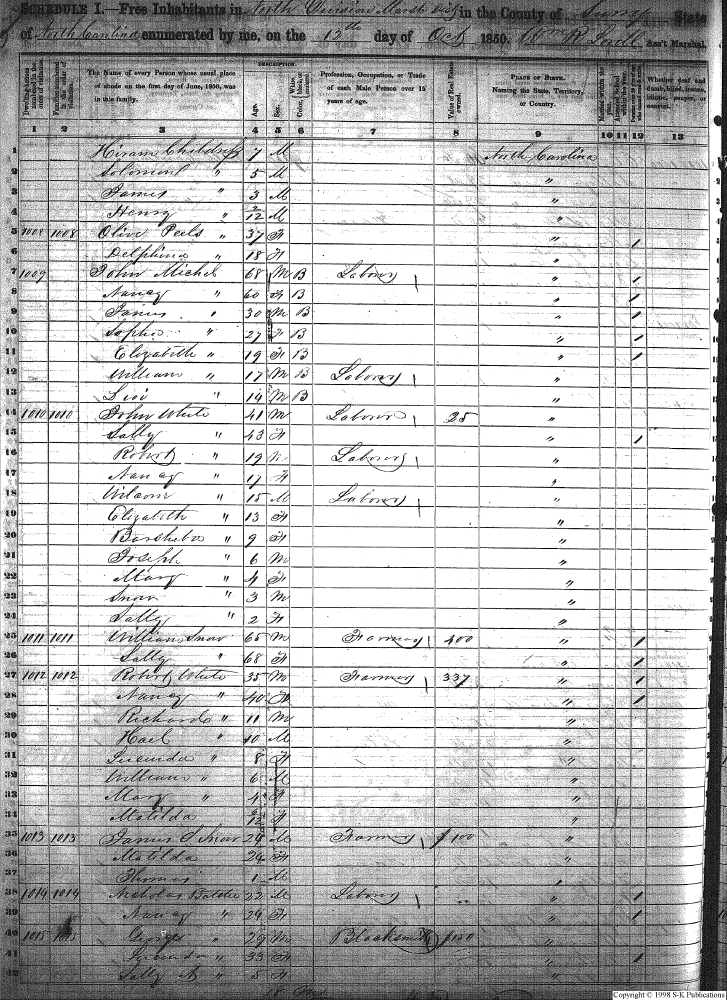 SCHEDULE I.—Free Inhabitants in North Division in the County of Surry State
of North Carolina enumerated by me, on the 12th day of Oct 1850. Wm R. Ass't Marshal.
DESCRIPTION.
The Name of every Person whose usual place of abode on the first day of June, 1850, was in this family.
Age.
Sex.
Profession, Occupation, or Trade of each Male Person over 15 years of age.
Value of Real Estate owned.
PLACE OF BIRTH. Naming the State, Territory, or Country.
Whether deaf and dumb, blind, insane, idiotic, pauper, or convict.
1 2 3 4 5 6 7 8 9 10 11 12 13
1 Hiram Childress 7 M North Carolina
2 Solomon " 5 M "
3 James " 3 M "
4 Henry " 2/12 M "
5 1008 1008 Olive Peels " 37 F " 1
6 Delphina " 18 F "
7 1009 John Michel 68 M B Laborer " 1
8 Nancy " 60 F B " 1
9 James " 30 M B " 1
10 Sophia " 27 F B " 1
11 Elizabeth " 19 F B " 1
12 William " 17 M B Laborer "
13 Levi " 14 M B "
14 1010 1010 John White 41 M Laborer 25 "
15 Sally " 43 F " 1
16 Robert " 19 M Laborer "
17 Nancy " 17 F "
18 Wilson " 15 M Laborer "
19 Elizabeth " 13 F "
20 Barsheba " 9 F "
21 Joseph " 6 M "
22 Mary " 4 F "
23 Snow " 3 M "
24 Sally " 2 F "
25 1011 1011 William Snow 65 M Farmer 400 " 1
26 Sally " 68 F " 1
27 1012 1012 Robert White 35 M Farmer 337 " 1
28 Nancy " 40 F " 1
29 Richard " 11 M "
30 " 10 M "
31 Lucinda " 8 F "
32 William " 6 M "
33 Mary " 4 F "
34 Matilda 2/12 F "
35 1013 1013 James Snow 29 M Farmer $100 "
36 Matilda 24 F "
37 Thomas 1 M "
38 1014 1014 Nicholas 22 M Laborer " 1
39 Nancy " 24 F " 1
40 1015 1015 George " 29 M Blacksmith $150 "
41 Lucinda " 33 F " 1
42 Sally " 5 F "
Copyright © 1998 S-K Publications